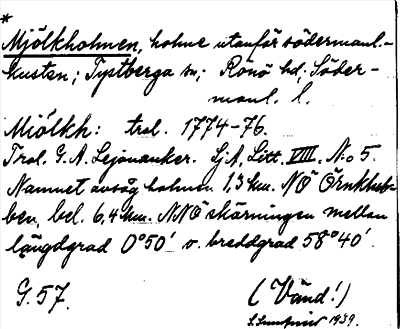 *
Mjölkholmen, holme utanför södermanl.-
kusten; Tystberga sn; Rönö hd; Söder-
manl. l.
Miölkh: trol. 1774-76.
Trol. G.A. Lejonanker. LjA, Litt. VIII. No 5.
Namnet avsåg holmen 1,3 km. NÖ Örnklub-
ben, bel. 6,4 km. NNÖ skärningen mellan
längdgrad 0°50' o. breddgrad 58°40'.
G. 57. (Vänd!)
1939.